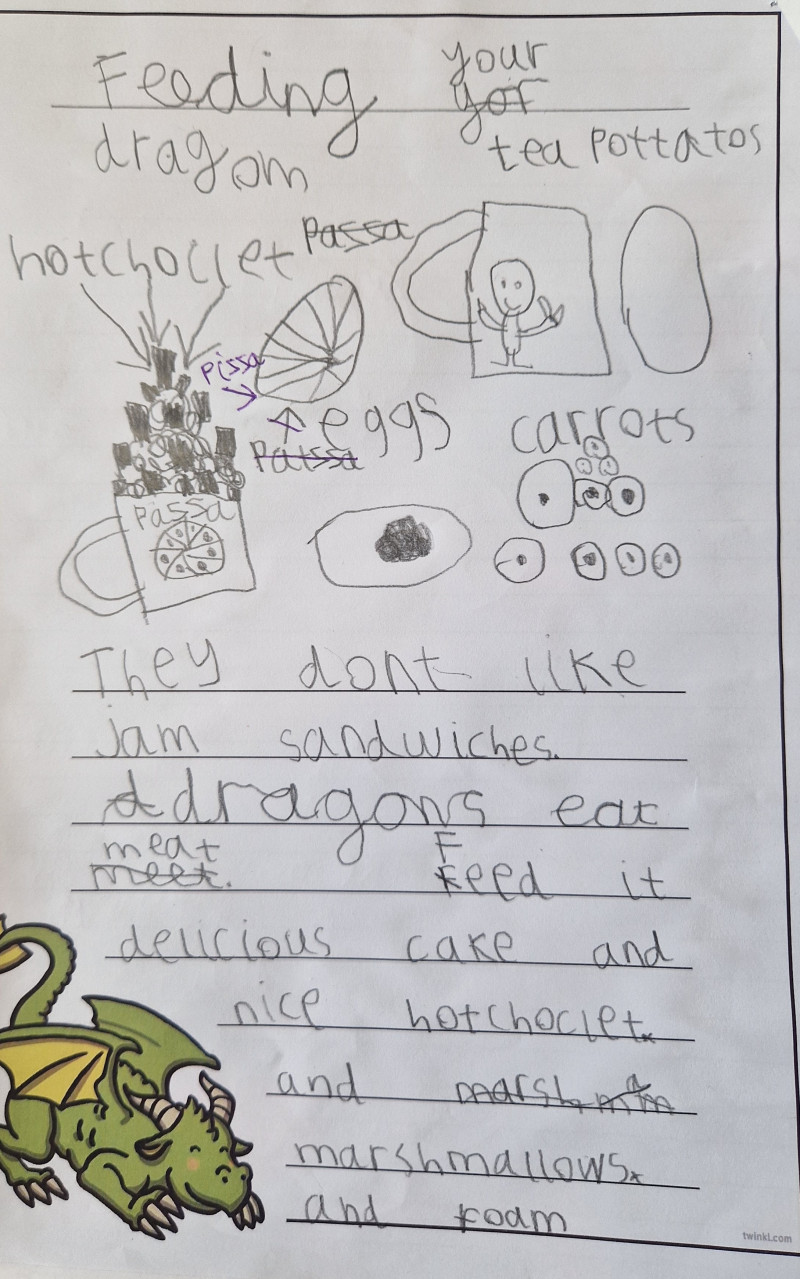 Feeding your
yor
dragon
tea pottatos
hotchoclet passa
pissa
eggs carrots
Patssa
Passa
They dont like
jam sandwiches.
d dragons eat
meat F
meet. feed it
delicious cake and
nice hotchoclet
and marshmm
marshmallows
and foam
twinkl.com